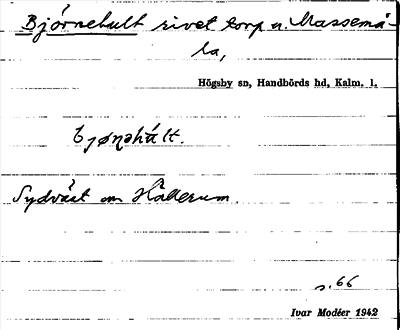 Björnehult rivet torp u. Massemå-
la,
Högsby sn, Handbörds hd, Kalm. l.
bjönəhált.
Sydväst om Hällerum.
s. 66
Ivar Modéer 1942